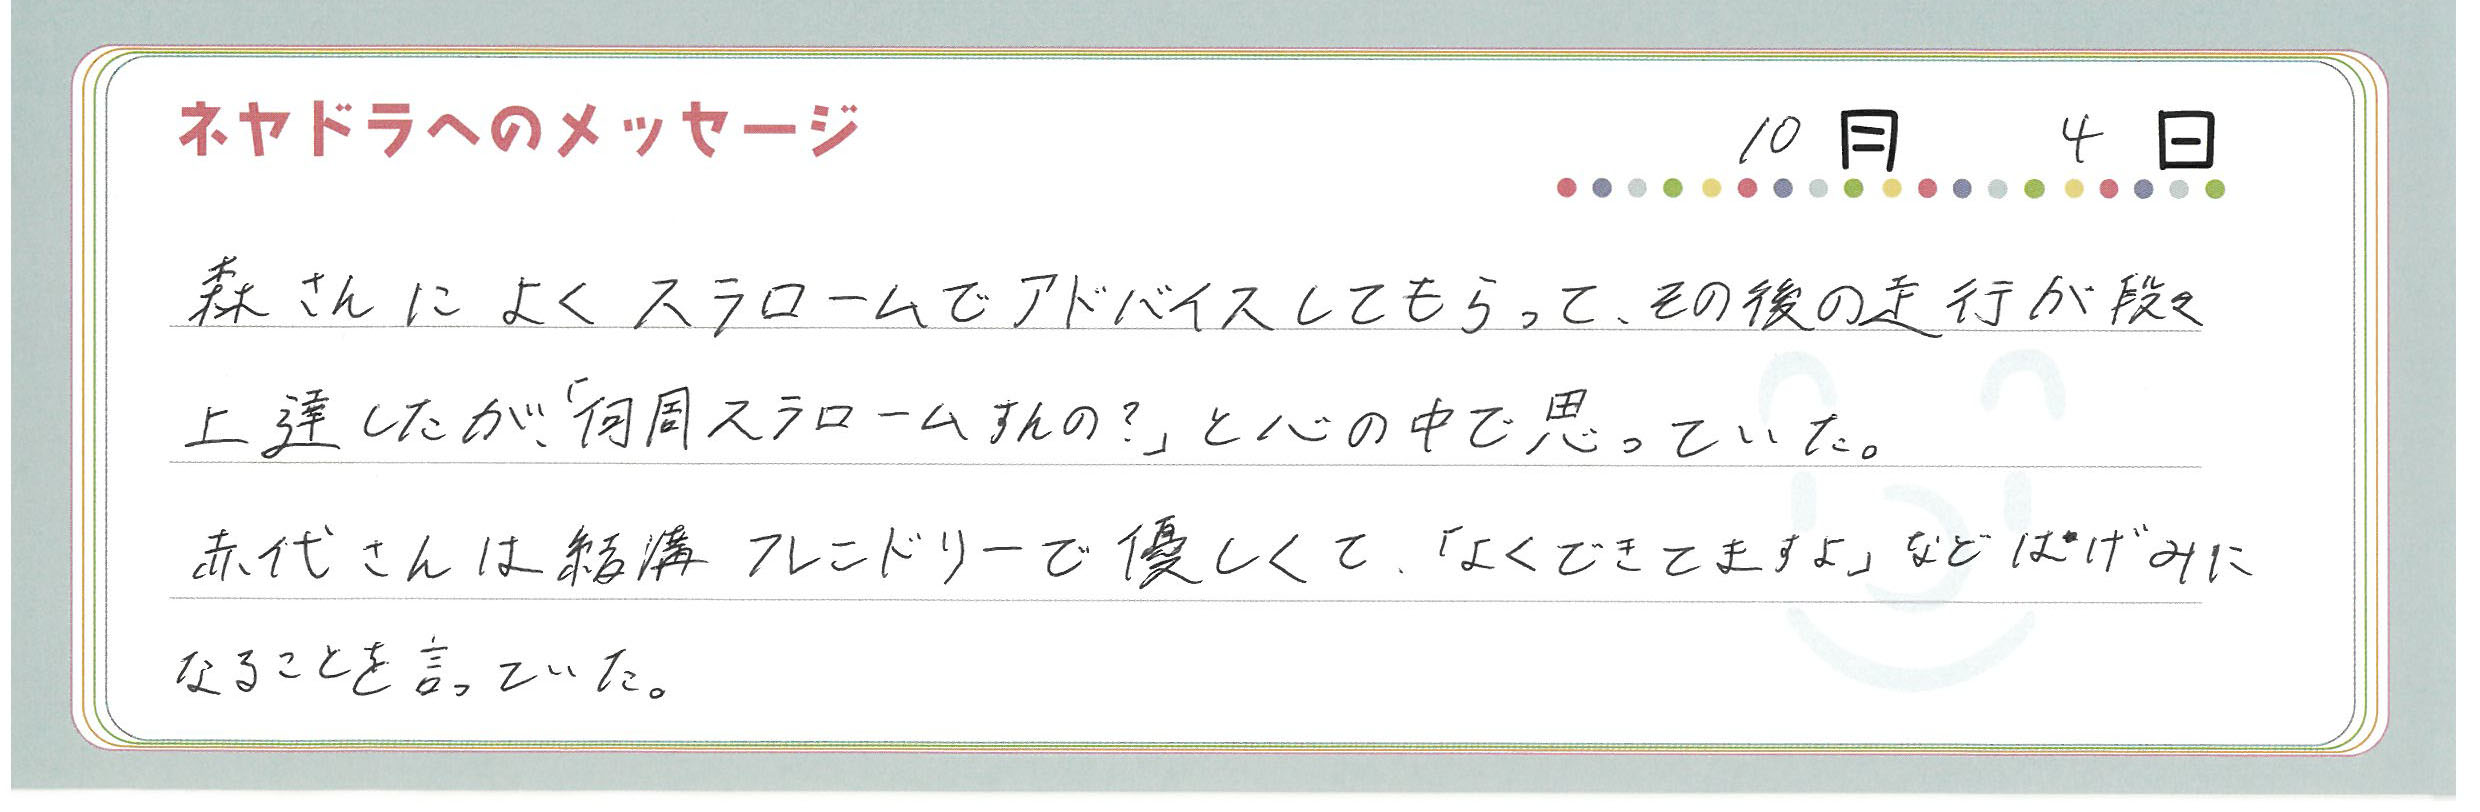 ネヤドラへのメッセージ
10月 4日
森さんによくスラロームでアドバイスしてもらって、その後の走行が段々
上達したが、「何周スラロームすんの?」と心の中で思っていた。
赤代さんは結構フレンドリーで優しくて、「よくできてますよ」などはげみに
なることを言っていた。